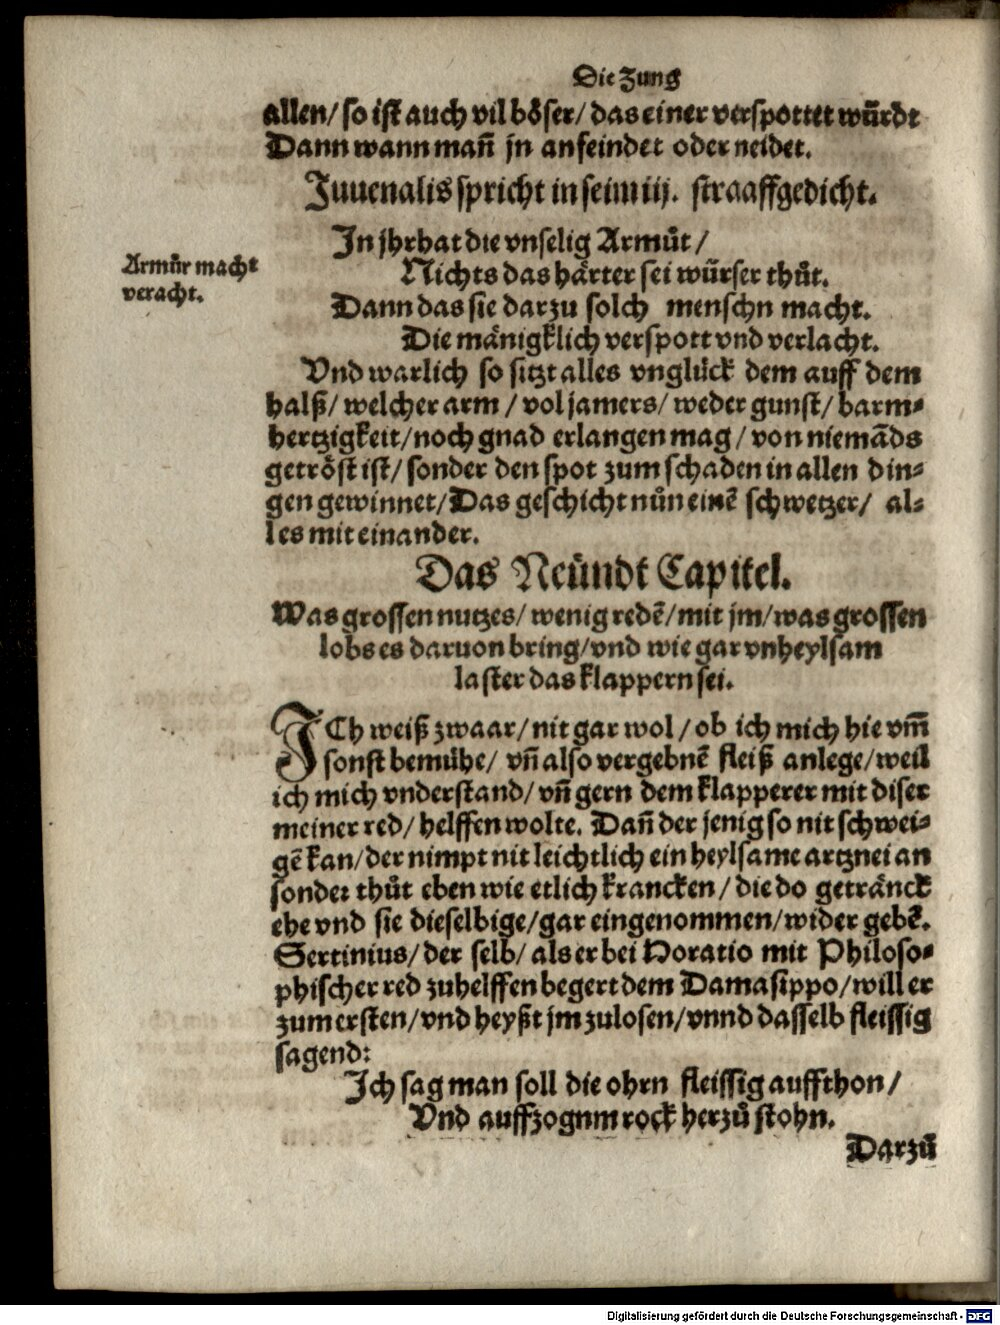 Die Zung
allen/ so ist auch vil böser/ das einer verspottet würdt
Dann wann mañ jn anfeindet oder neidet.
Juuenalis spricht in seim iij. straaffgedicht.
In jhr hat die vnselig Armůt/
Nichts das härter sei würser thůt.
Armůt macht
veracht.
Dann das sie darzu solch menschn macht.
Die mänigklich verspott vnd verlacht.
Vnd warlich so sitzt alles vnglück dem auff dem
halß/ welcher arm / vol jamers/ weder gunst/ barm-
hertzigkeit/ noch gnad erlangen mag / von niemãds
getröst ist/ sonder den spot zum schaden in allen din-
gen gewinnet/ Das geschicht nůn einẽ schwetzer/ al-
les mit einander.
Das Neündt Capitel.
Was grossen nutzes/ wenig redẽ/ mit jm/ was grossen
lobs es daruon bring/ vnd wie gar vnheylsam
laster das klappern sei.
ICh weiß zwaar/ nit gar wol / ob ich mich hie vm̃
sonst bemühe/ vñ also vergebnẽ fleiß anlege/ weil
ich mich vnderstand/ vñ gern dem klapperer mit diser
meiner red/ helffen wolte. Dañ der jenig so nit schwei-
gẽ kan/ der nimpt nit leichtlich ein heylsame artznei an
sonder thůt eben wie etlich krancken / die do getränck
ehe vnd sie dieselbige/ gar eingenommen/ wider gebẽ.
Sertinius/ der selb/ als er bei Horatio mit Philoso-
phischer red zuhelffen begert dem Damasippo/ will er
zum ersten/ vnd heyßt jm zulosen/ vnnd dasselb fleissig
sagend:
Ich sag man soll die ohrn fleissig auffthon /
Vnd auffzognm rock herzů stohn.
Darzů
Digitalisierung gefördert durch die Deutsche Forschungsgemeinschaft - DFG